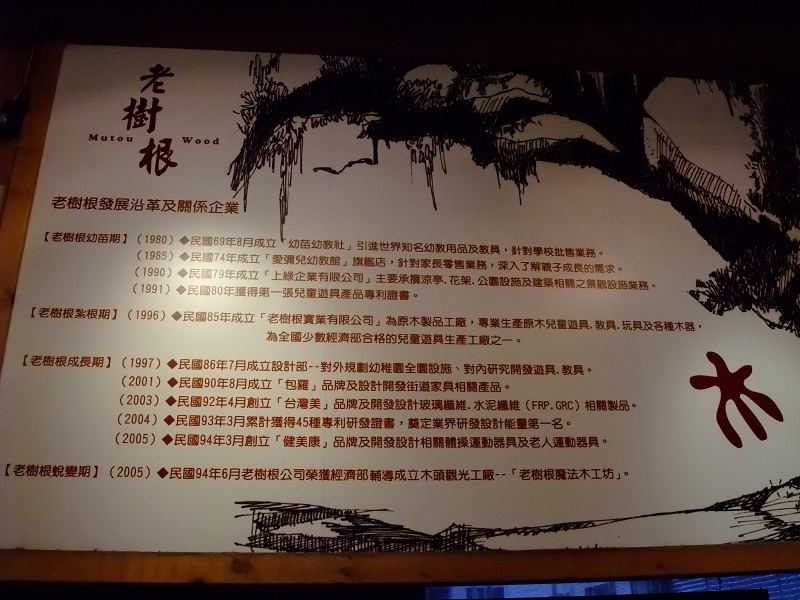 老樹根
Mutou Wood
老樹根發展沿革及關係企業
【老樹根幼苗期】（1980）◆民國69年8月成立「幼苗幼教社」引進世界知名幼教用品及教具，針對學校批售業務。
（1985）◆民國74年成立「愛彌兒幼教館」旗艦店，針對家長零售業務，深入了解親子成長的需求。
（1990）◆民國79年成立「上綠企業有限公司」主要承攬涼亭.花架.公園設施及建築相關之景觀設施業務。
（1991）◆民國80年獲得第一張兒童遊具產品專利證書。
【老樹根紮根期】（1996）◆民國85年成立「老樹根實業有限公司」為原木製品工廠，專業生產原木兒童遊具.教具.玩具及各種木器，
為全國少數經濟部合格的兒童遊具生產工廠之一。
【老樹根成長期】（1997）◆民國86年7月成立設計部--對外規劃幼稚園全園設施、對內研究開發遊具.教具。
（2001）◆民國90年8月成立「包羅」品牌及設計開發街道家具相關產品。
（2003）◆民國92年4月創立「台灣美」品牌及開發設計玻璃纖維.水泥纖維（FRP.GRC）相關製品。
（2004）◆民國93年3月累計獲得45種專利研發證書，奠定業界研發設計能量第一名。
（2005）◆民國94年3月創立「健美康」品牌及開發設計相關體操運動器具及老人運動器具。
【老樹根蛻變期】（2005）◆民國94年6月老樹根公司榮獲經濟部輔導成立木頭觀光工廠--「老樹根魔法木工坊」。